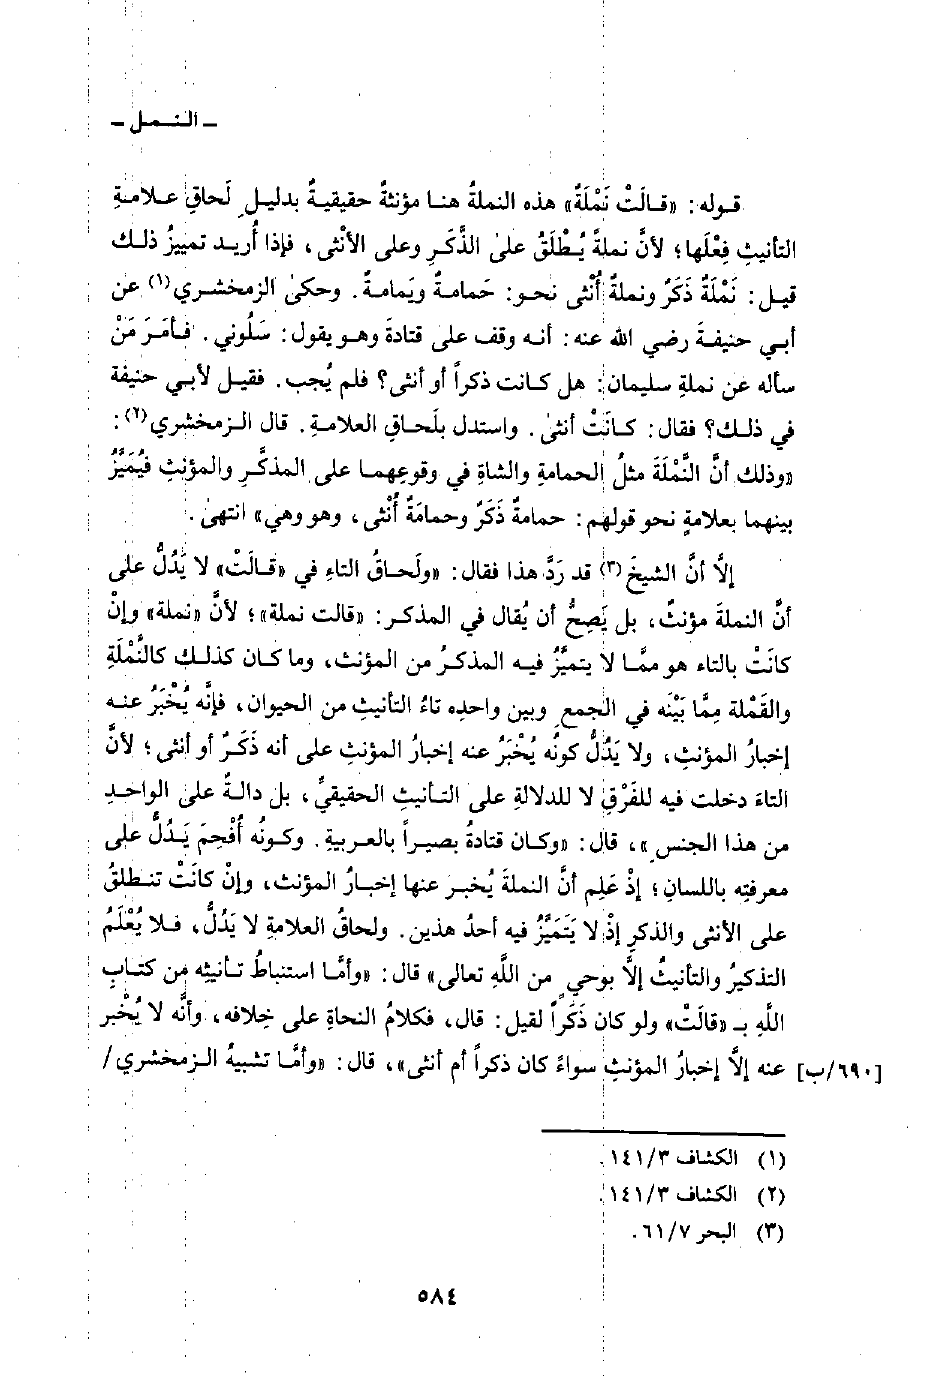 ـ النـمـل ـ
قوله: «قالَتْ نَمْلَةٌ» هذه النملةُ هنا مؤنثةٌ حقيقيةٌ بدليلِ لَحاقِ علامةِ
التأنيثِ فِعْلَها؛ لأنَّ نملةً يُطْلَقُ على الذَّكَرِ وعلى الأنْثى، فإذا أُريد تمييزُ ذلك
قيل: نَمْلَةٌ ذَكَرٌ ونملةٌ أُنْثى نحو: حَمامةٌ ويَمامةٌ. وحكىٰ الزمخشري(١) عن
أبي حنيفةَ رضي الله عنه: أنه وقف على قتادةَ وهو يقول: سَلُوني. فأمَرَ مَنْ
سأله عن نملةِ سليمان: هل كانت ذكراً أو أنثى؟ فلم يُجب. فقيل لأبي حنيفة
في ذلك؟ فقال: كانَتْ أنثىٰ. واستدل بلَحاقِ العلامةِ. قال الزمخشري(٢):
«وذلك أنَّ النَّمْلَةَ مثلُ الحمامةِ والشاةِ في وقوعِهما على المذكَّرِ والمؤنثِ فيُمَيَّزُ
بينهما بعلامةٍ نحو قولِهم: حمامةٌ ذَكَرٌ وحمامَةٌ أُنْثى، وهو وهي» انتهىٰ.
إلَّا أنَّ الشيخَ(٣) قد رَدَّ هذا فقال: «ولَحاقُ التاءِ في «قالَتْ» لا يَدُلُّ على
أنَّ النملةَ مؤنثٌ، بل يَصِحُّ أن يُقال في المذكر: «قالت نملة»؛ لأنَّ «نملة» وإنْ
كانَتْ بالتاء هو ممَّا لا يتميَّزُ فيه المذكرُ من المؤنث، وما كان كذلك كالنَّمْلَةِ
والقَمْلة مِمَّا بَيْنَه في الجمعِ وبين واحدِه تاءُ التأنيثِ من الحيوان، فإنَّه يُخْبَرُ عنه
إخبارُ المؤنثِ، ولا يَدُلُّ كونُه يُخْبَرُ عنه إخبارُ المؤنثِ على أنه ذَكَرٌ أو أنثى؛ لأنَّ
التاءَ دخلت فيه للفَرْقِ لا للدلالةِ على التأنيثِ الحقيقيِّ، بل دالةٌ على الواحدِ
من هذا الجنسِ»، قال: «وكان قتادةُ بصيراً بالعربيةِ. وكونُه أُفْحِمَ يَدُلُّ على
معرفتِه باللسانِ؛ إذْ عَلِم أنَّ النملةَ يُخبر عنها إخبارُ المؤنث، وإنْ كانَتْ تنطلقُ
على الأنثى والذكرِ إذْ لا يَتَمَيَّزُ فيه أحدُ هذين. ولحاقُ العلامةِ لا يَدُلُّ، فلا يُعْلَمُ
التذكيرُ والتأنيثُ إلَّا بوحيٍ من اللَّهِ تعالى» قال: «وأمَّا استنباطُ تأنيثِه مِن كتابِ
اللَّهِ بـ «قالَتْ» ولو كان ذَكَراً لقيل: قال، فكلامُ النحاةِ على خِلافه، وأنَّه لا يُخْبر
[٦٩٠/ب] عنه إلَّا إخبارُ المؤنثِ سواءً كان ذكراً أم أنثى»، قال: «وأمَّا تشبيهُ الزمخشري/
(١) الكشاف ١٤١/٣.
(٢) الكشاف ١٤١/٣.
(٣) البحر ٦١/٧.
٥٨٤